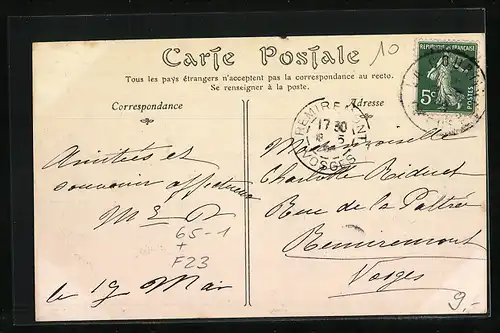 10
Carte Postale
Tous les pays étrangers n'acceptent pas la correspondance au recto.
Se renseigner à la poste.
REPUBLIQUE FRANÇAISE
5c
POSTES
Correspondance
Adresse
REMIREMONT
17 30
5
VOSGES
Amitiés et
souvenir affectueux
M E D
65-1
+
F23
le 19 Mai
Mademoiselle
Charlotte
Rue de la
Remiremont
Vosges
9,-